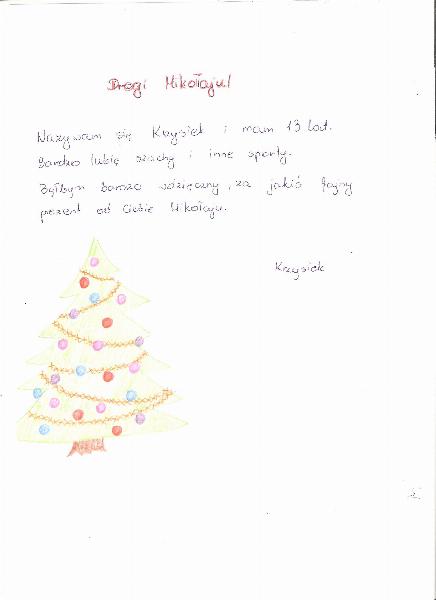 Drogi Mikołaju!
Nazywam się Krzysiek i mam 13 lat.
Bardzo lubię szachy i inne sporty.
Byłbym bardzo wdzięczny, za jakiś fajny
prezent od Ciebie Mikołaju.
Krzysiek